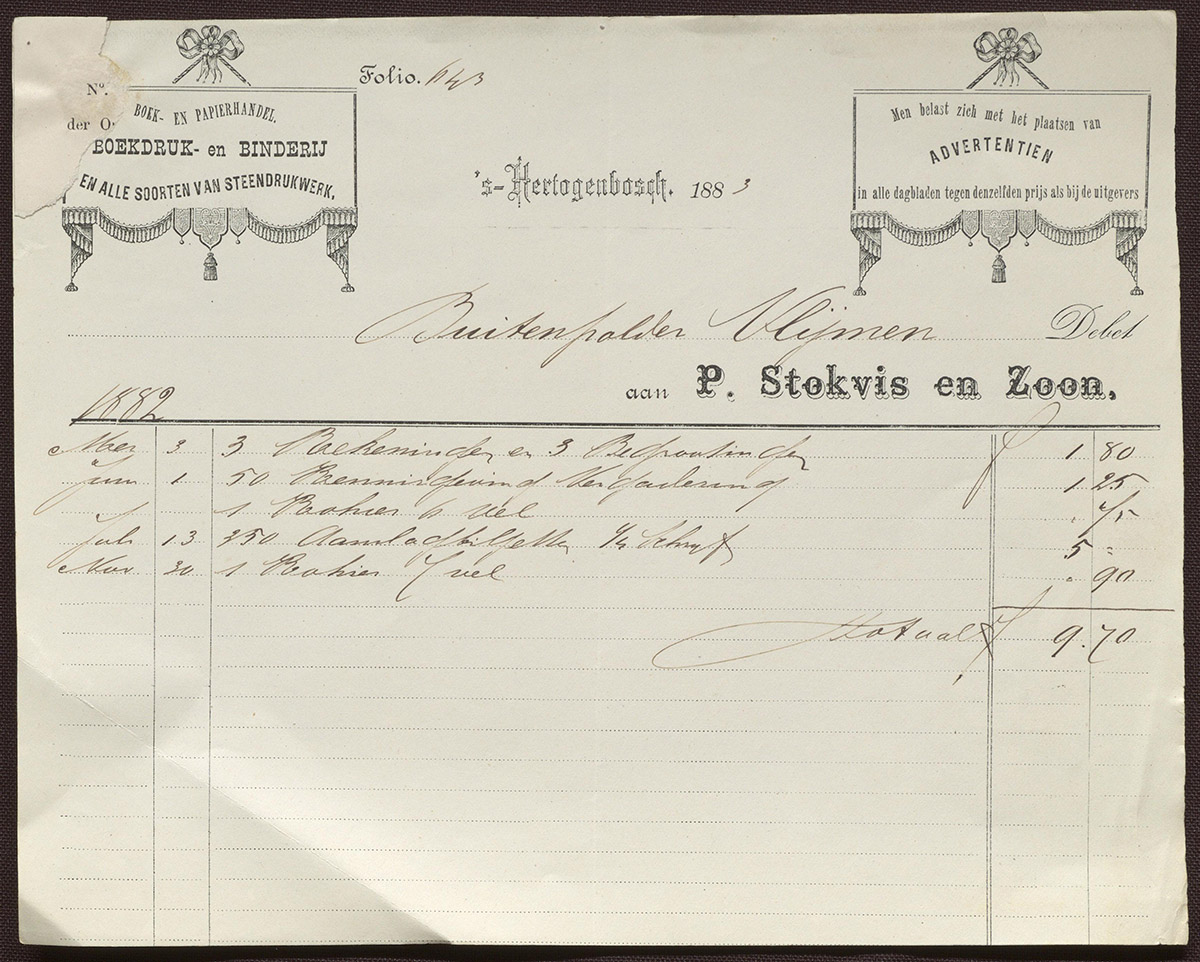 Nº.
der O
BOEK- EN PAPIERHANDEL.
BOEKDRUK- en BINDERIJ
EN ALLE SOORTEN VAN STEENDRUKWERK.
Folio. 643
's-Hertogenbosch. 1883
Men belast zich met het plaatsen van
ADVERTENTIEN
in alle dagbladen tegen denzelfden prijs als bij de uitgevers
Buitenpolder Vlijmen Debet
aan P. Stokvis en Zoon.
1882
3 3 Rekeningen en 3 Begrootingen f 1 80
Juni 1 50 Kennisgeving Vergadering 1 25
1 Kohier 6 vel " 75
Juli 13 250 Aanslagbiljetten 5 "
Nov 30 1 Kohier 7 vel " 90
Totaal f 9.70